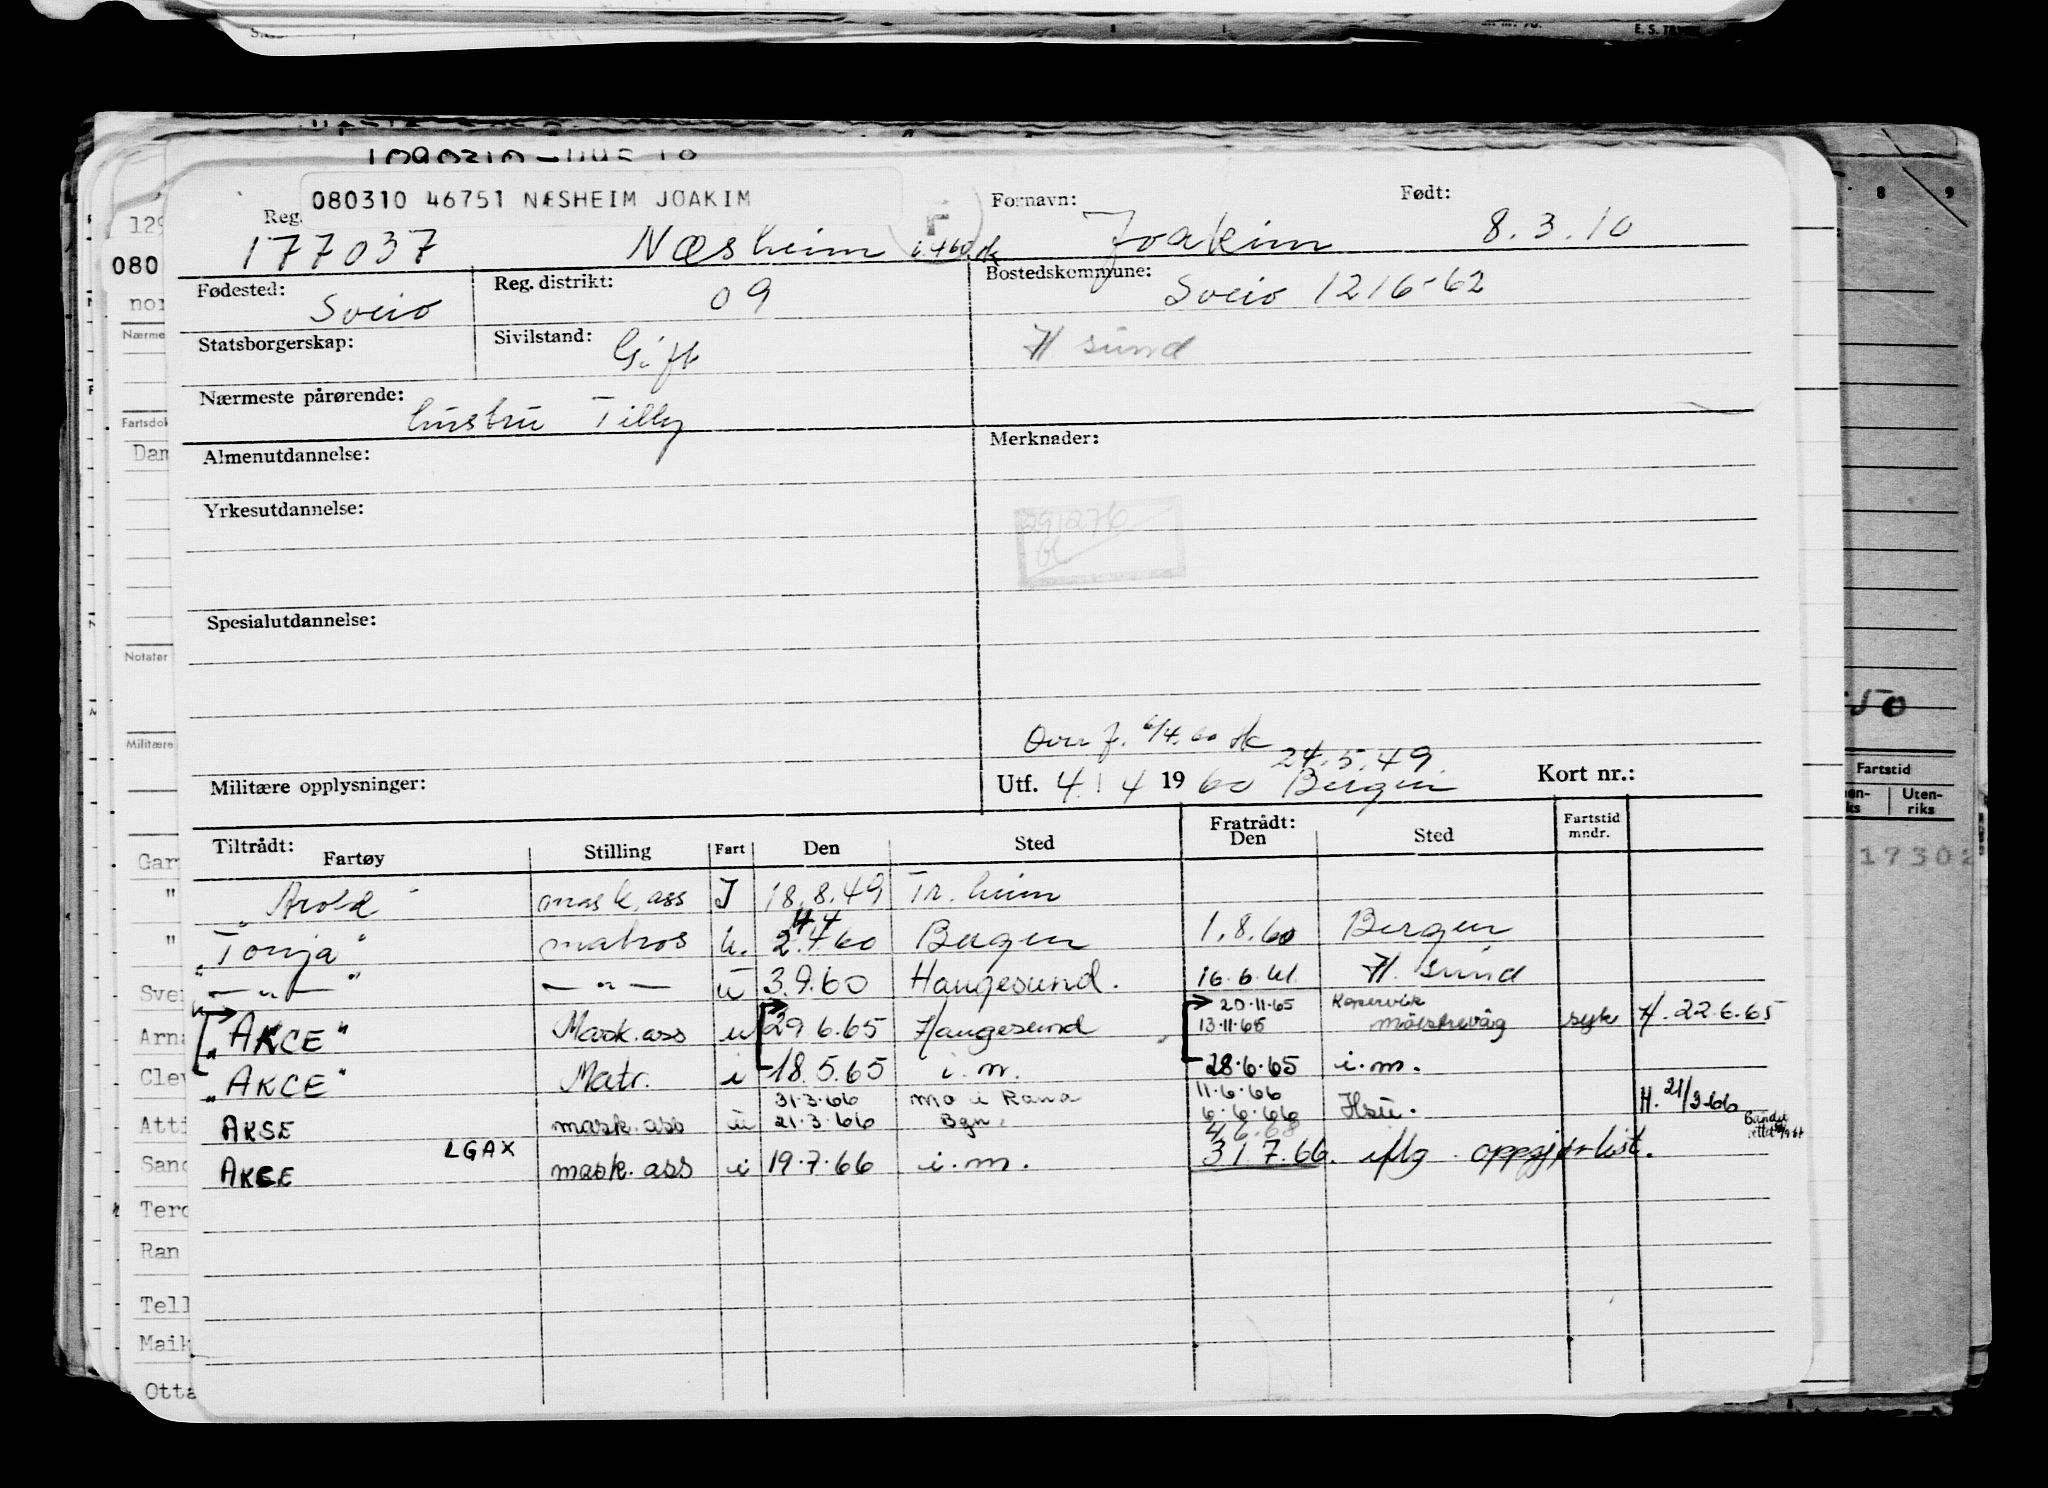 E. S.
080310 46751 NÆSHEIM JOAKIM
Reg. Fornavn: Født:
177037 Næsheim Joakim 8.3.10
Fødested: Sveio Reg. distrikt: 09 Bostedskommune: Sveio 1216-62
Statsborgerskap: Sivilstand: Gift H. sund
Nærmeste pårørende: hustru Tilly
Almenutdannelse: Merknader:
Yrkesutdannelse:
291276
Spesialutdannelse:
Overf. 6/4.60
24.5.49
Militære opplysninger: Utf. 4/4 1960 Bergen Kort nr.:
Tiltrådt: Fartøy Stilling Fart Den Sted Fratrådt: Den Sted Fartstid mndr.
"Arold" mask.ass I 18.8.49 Tr.heim
"Tonja" matros u. 2.4.60 Bergen 1.8.60 Bergen
— " — — " — u 3.9.60 Haugesund. 16.6.61. H. sund
20.11.65 Kopervik
"AKCE" Mask.ass u 29.6.65 Haugesund 13.11.65 syk H. 22.6.65
"AKCE" Matr. i 18.5.65 i.m. 28.6.65 i.m.
31.3.66 Mo i Rana 11.6.66
AKSE mask.ass u 21.3.66 Bgn. 6.6.66 Hsu. H. 21/3-66
LGAX
AKCE mask.ass i 19.7.66 i.m. 31.7.66. iflg. oppgjørlist.
129
080
nor
Nærme
Fartsdok
Dan
Notater
Militære
Gar
"
"
Sver
Arna
Clev
Atti
Sand
Terd
Ran
Tell
Maik
Otta
8 9
50
Fartstid
Uten-
riks
17302